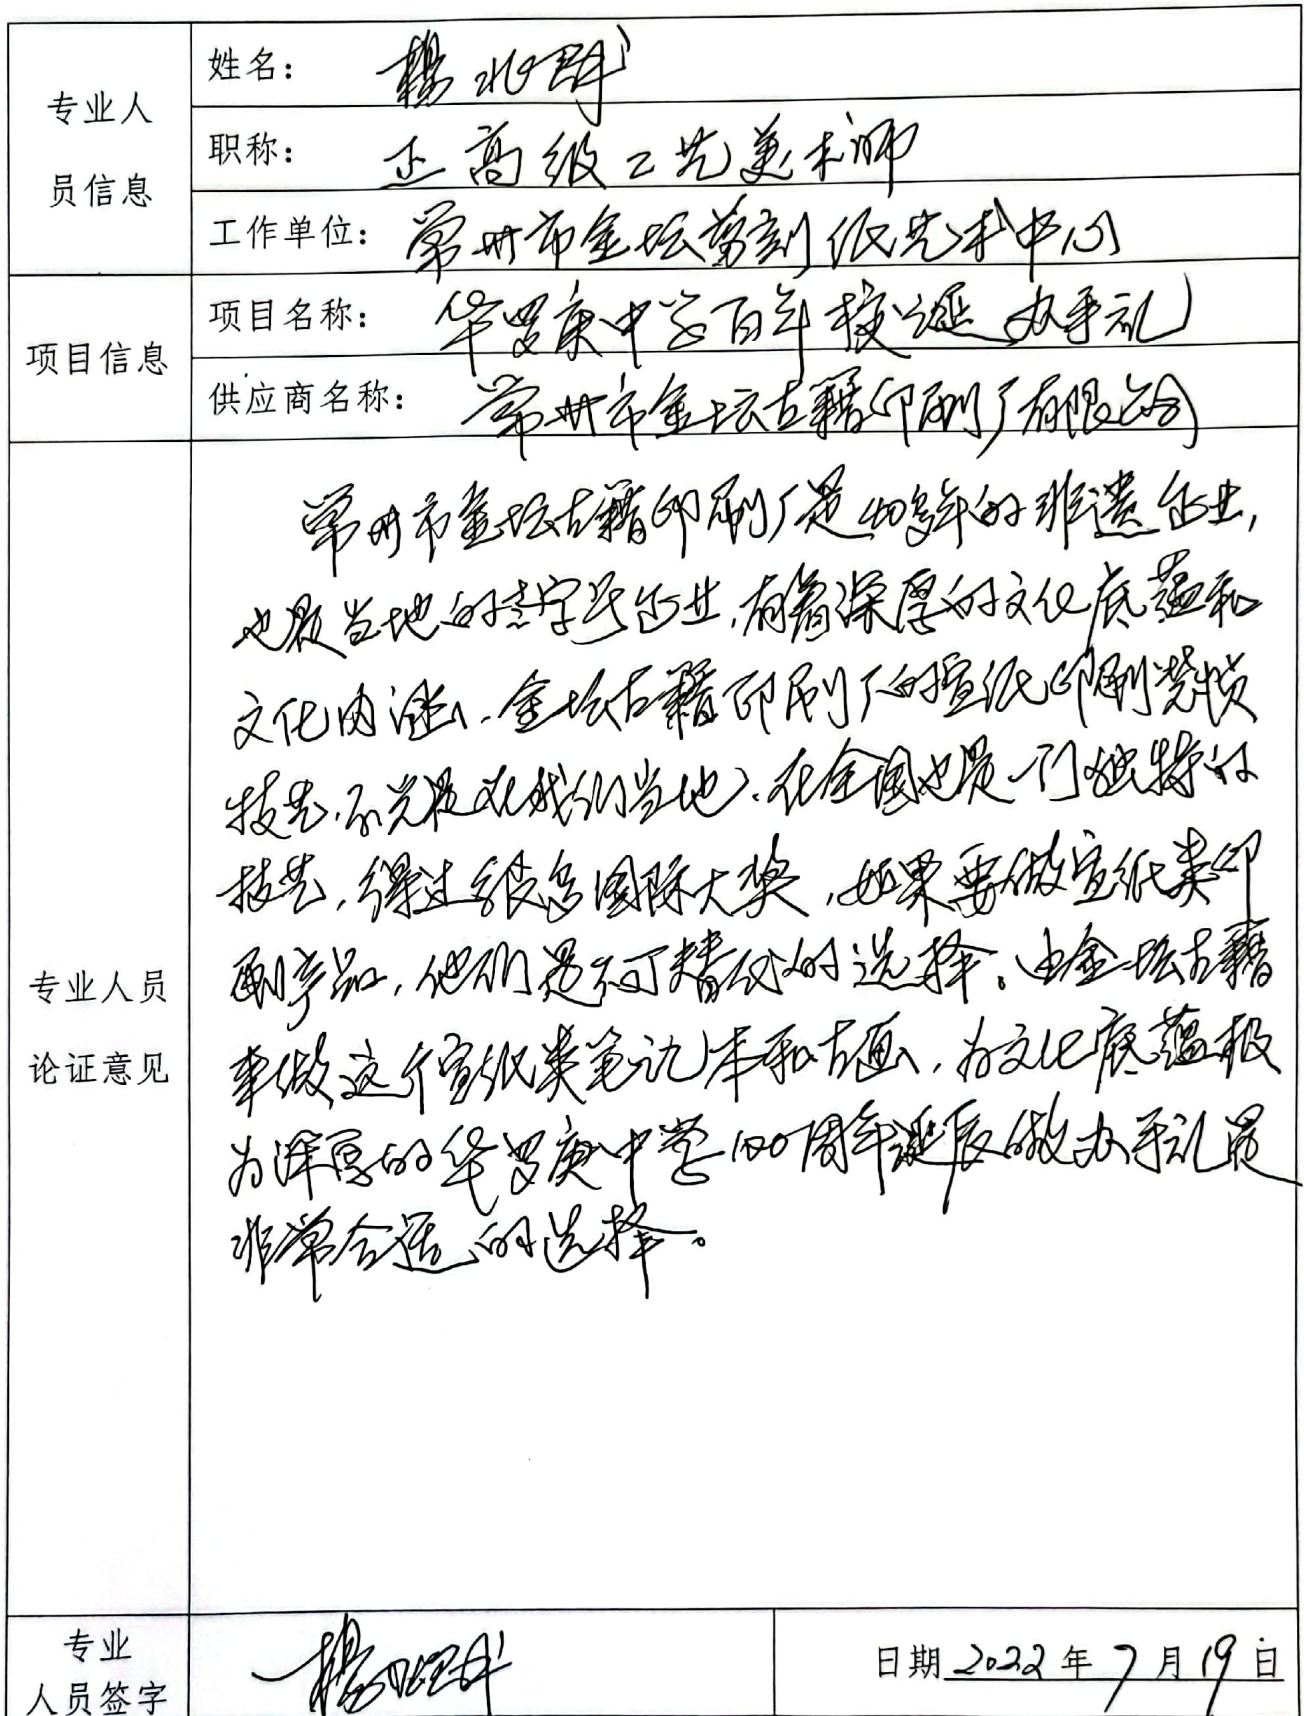 专业人
员信息
姓名：杨兆群
职称：正高级工艺美术师
工作单位：常州市金坛剪刻纸艺术中心
项目信息
项目名称：华罗庚中学百年校诞办手礼
供应商名称：常州市金坛古籍印刷厂有限公司
专业人员
论证意见
常州市金坛古籍印刷厂是40多年的非遗企业，
也是当地的老字号企业，有着深厚的文化底蕴和
文化内涵，金坛古籍印刷厂的宣纸印刷装帧
技艺，不光是在我们当地，在全国也是一门独特的
技艺，得过很多国际大奖，如果要做宣纸类印
刷产品，他们是不可替代的选择。由金坛古籍
来做这个宣纸类笔记本和古画，为文化底蕴极
为深厚的华罗庚中学100周年诞辰做办手礼是
非常合适的选择。
专业
人员签字
杨兆群
日期 2022 年 7 月 19 日